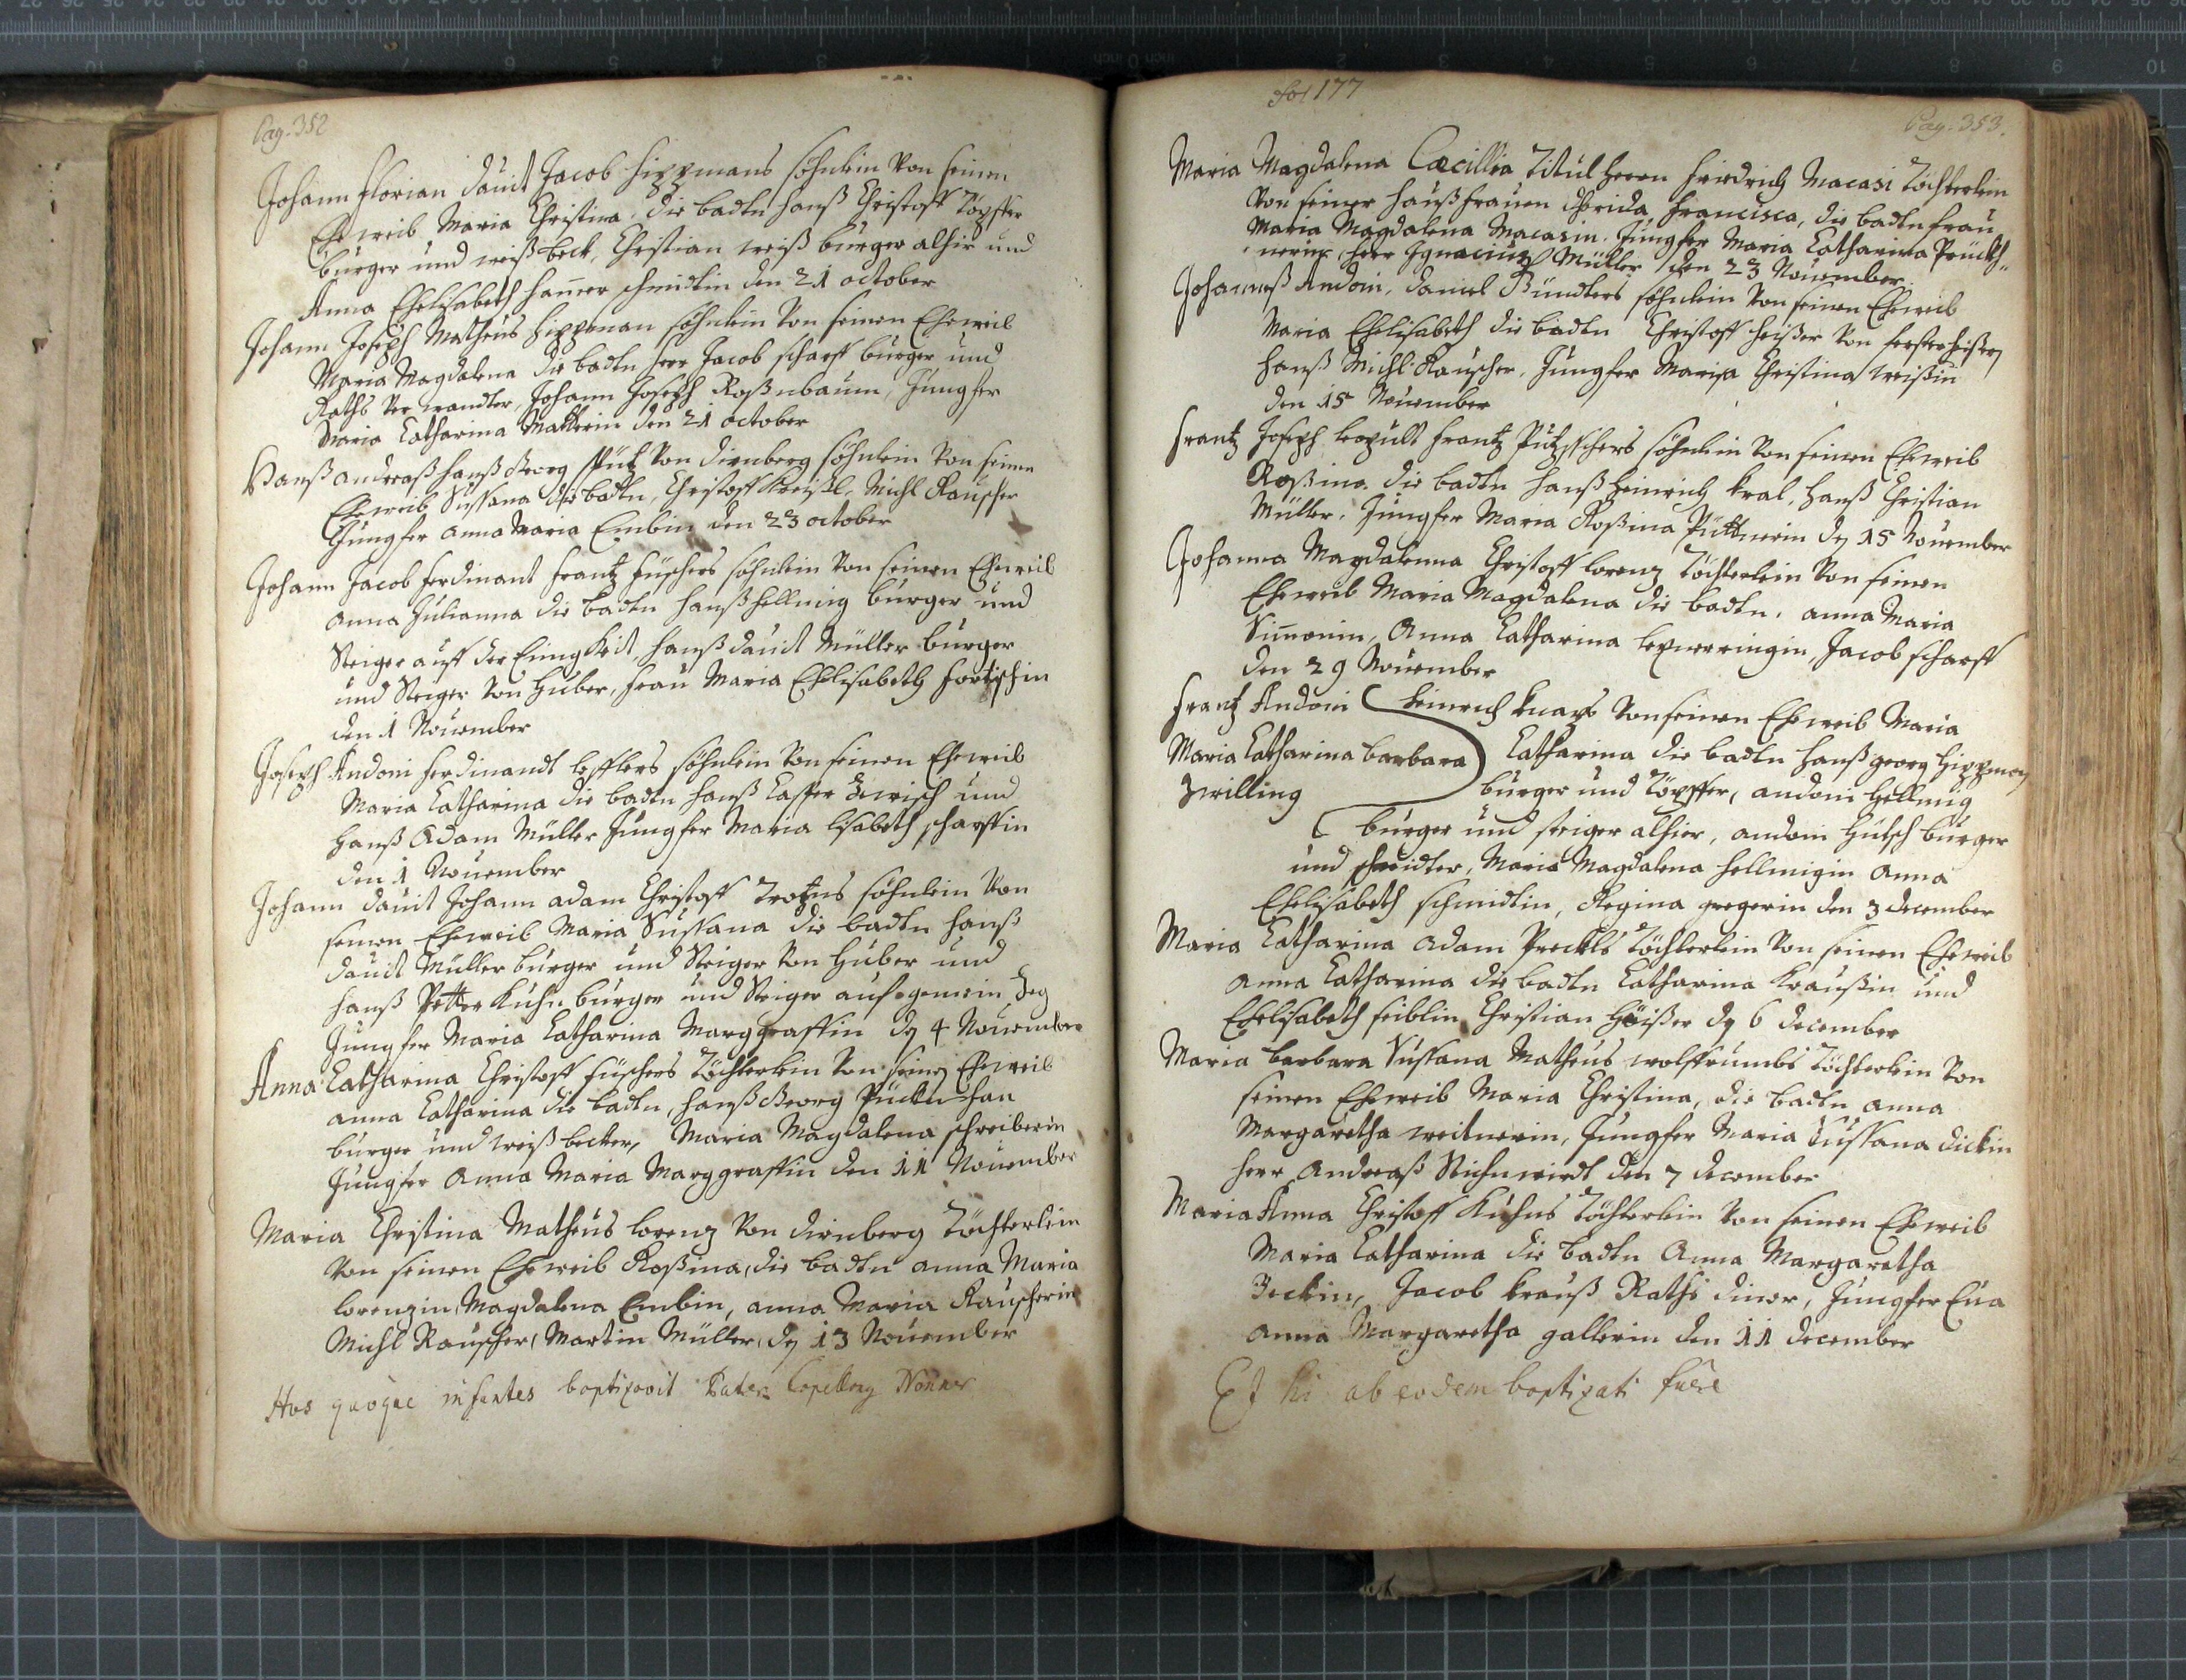 Pag. 352
Johann Florian dauit Jacob hippmans söhnlein von seinen
Ehe weib Maria Christina, die badtn hanß Christoff Töpffer
burger und weiß beck, Christian weiß burger alhir und
Anna Ehelisabeth ham̄er schmidtin den 21 october
Johann Joseph Matheus hippman söhnlein von seinen Eheweib
Maria Magdalena die badtn herr Jacob scharff burger und
Raths ver wandter, Johann Joseph Roßnbaum, Jungfer
Maria Catharina Mattlerin den 21 october
Hanß andreaß hanß Georg von dirnberg söhnlein von seinen
Eheweib Sussana die badtn, Christoff Michl Rauscher
Jungfer anna Maria Embin den 23 october
Johann Jacob ferdinant frantz füschers söhnlein von seinen Eheweib
anna Julianna die badtn hanß hellmig burger und
Steiger auff der Einigkeit, hanß dauit Müller burger
und Steiger von Huber, frau Maria Ehelisabeth fortschin
den 1 Nouember
Joseph Andoni ferdinandt lefflers söhnlein von seinen Eheweib
Maria Catharina die badtn hanß Casper und
hanß Adam Müller Jungfer Maria lisabeth scharffin
den 1 Nouember
Johann dauit Johann adam Christoff söhnlein von
seinen Eheweib Maria Sussana die badtn hanß
dauit Müller burger und Steiger von Huber und
hanß Petter Kuhn burger und Steiger auf gemein
Jungfer Maria Catharina Marggraffin dj 4 Nouember
Anna Catharina Christoff füschers Töchterlein von seinen Eheweib
anna Catharina die badtn, hanß Georg
burger und weiß becker, Maria Magdalena schreiberin
Jungfer Anna Maria Marggraffin den 11 Nouember
Maria Christina Matheus lorenz von dirnberg Töchterlein
von seinen Eheweib Roßina, die badtn anna Maria
lorenzin, Magdalena Embin, anna Maria Rauscherin
Michl Rauscher, Martin Müller, dj 13 Nouember
Hos quoque infantes baptizavit Pater
fol 177
Pag. 353.
Maria Magdalena Cæcillia Titul herrn friedrich Macasi Töchterlein
von seiner haußfrauen francisca, die badtn frau
Maria Magdalena Macasin. Jungfer Maria Catharina Prückh„
nerin, herr Ignacius Müller den 23 Nouember
Johanneß Andoni, daniel Bündlers söhnlein von seinen Eheweib
Maria Ehelisabeth die badtn Christoff heißer von
hanß Michl Rauscher, Jungfer Maria Christina weißin
den 15 Nouember
Frantz Joseph leopult frantz söhnlein von seinen Eheweib
Roßina. die badtn hanß heinrich kral, hanß Christian
Müller, Jungfer Maria Roßina Püttnerin dj 15 Nouember
Johanna Magdalenna Christoff lorenz Töchterlein von seinen
Eheweib Maria Magdalena die badtn, anna Maria
Sim̄onin, Anna Catharina Jacob scharff
den 29 Nouember
Frantz Andoni heinrich von seinen Eheweib Maria
Maria Catharina barbara Catharina die badtn hanß georg hippman
Zwilling burger und Töpffer, andoni hellmig
burger und steiger alhier, andoni burger
und Maria Magdalena hellmigin anna
Ehelisabeth schmidtin, Regina gregerin den 3 december
Maria Catharina adam Töchterlein von seinen Eheweib
anna Catharina die badtn Catharina kraußin und
Ehelisabeth seiblin Christian heißer dj 6 december
Maria barbara Sussana Matheus wolffrumbs Töchterlein von
seinen Eheweib Maria Christina, die badtn anna
Margaretha weidnerin, Jungfer Maria Sussana dickin
herr Andreaß den 7 december
Maria Anna Christoff Kuhns Töchterlein von seinen Eheweib
Maria Catharina die badtn Anna Margaretha
Beckin, Jacob krauß Raths diner, Jungfer Eua
anna Margaretha gallerin den 11 december
Et hi ab eodem baptizati fuere